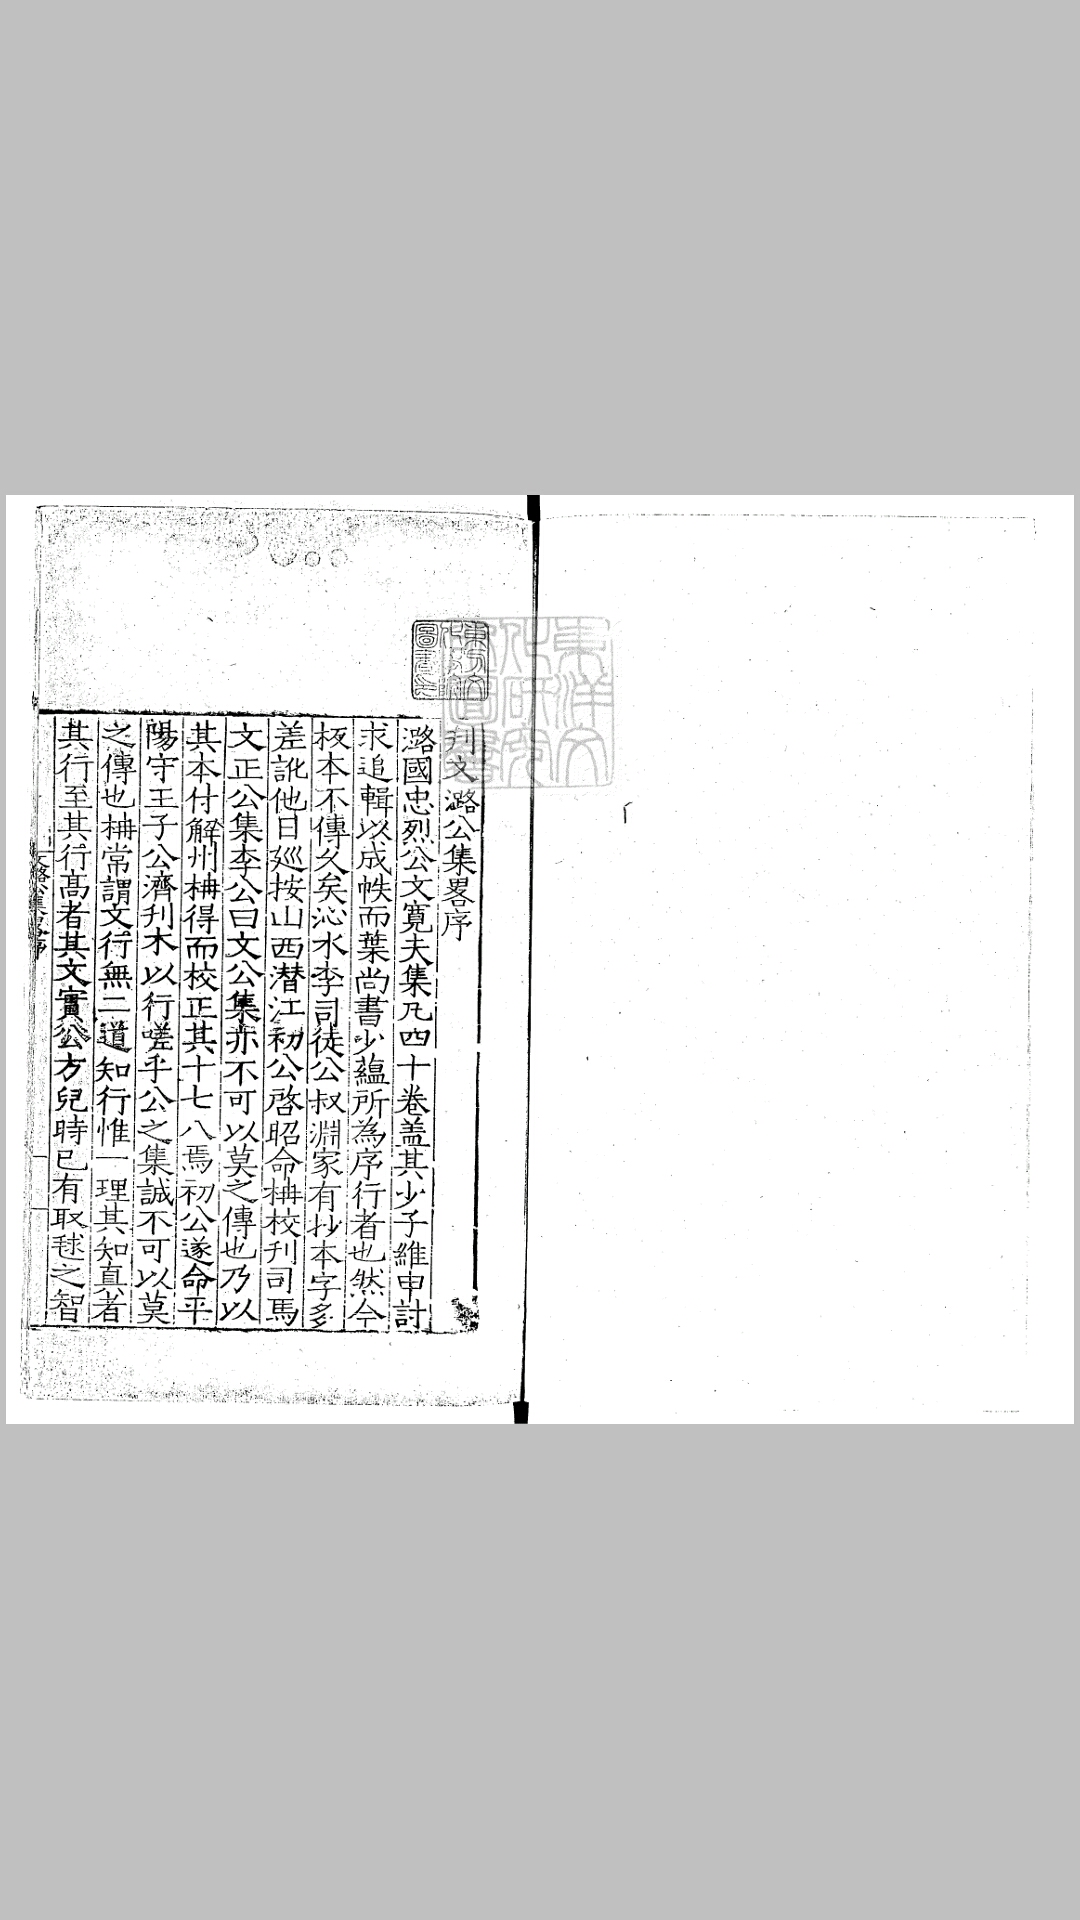 刋文潞公集畧序
潞國忠烈公文寛夫集凡四十卷盖其少子維申討
求追輯以成帙而葉尚書少藴所為序行者也然今
板本不傳久矣沁水李司徒公叔淵家有抄本字多
差訛他日廵按山西潜江初公啓昭命柟校刋司馬
文正公集李公曰文公集亦不可以莫之傳也乃以
其本付解州柟得而校正其十七八焉初公遂命平
陽守王子公濟刋木以行嗟乎公之集誠不可以莫
之傳也柟常謂文行無二道知行惟一理其知真者
其行至其行髙者其文實公方兒時已有取毬之智
文潞公集畧序
一
東方文化研究所圖書
東洋文化研究所圖書